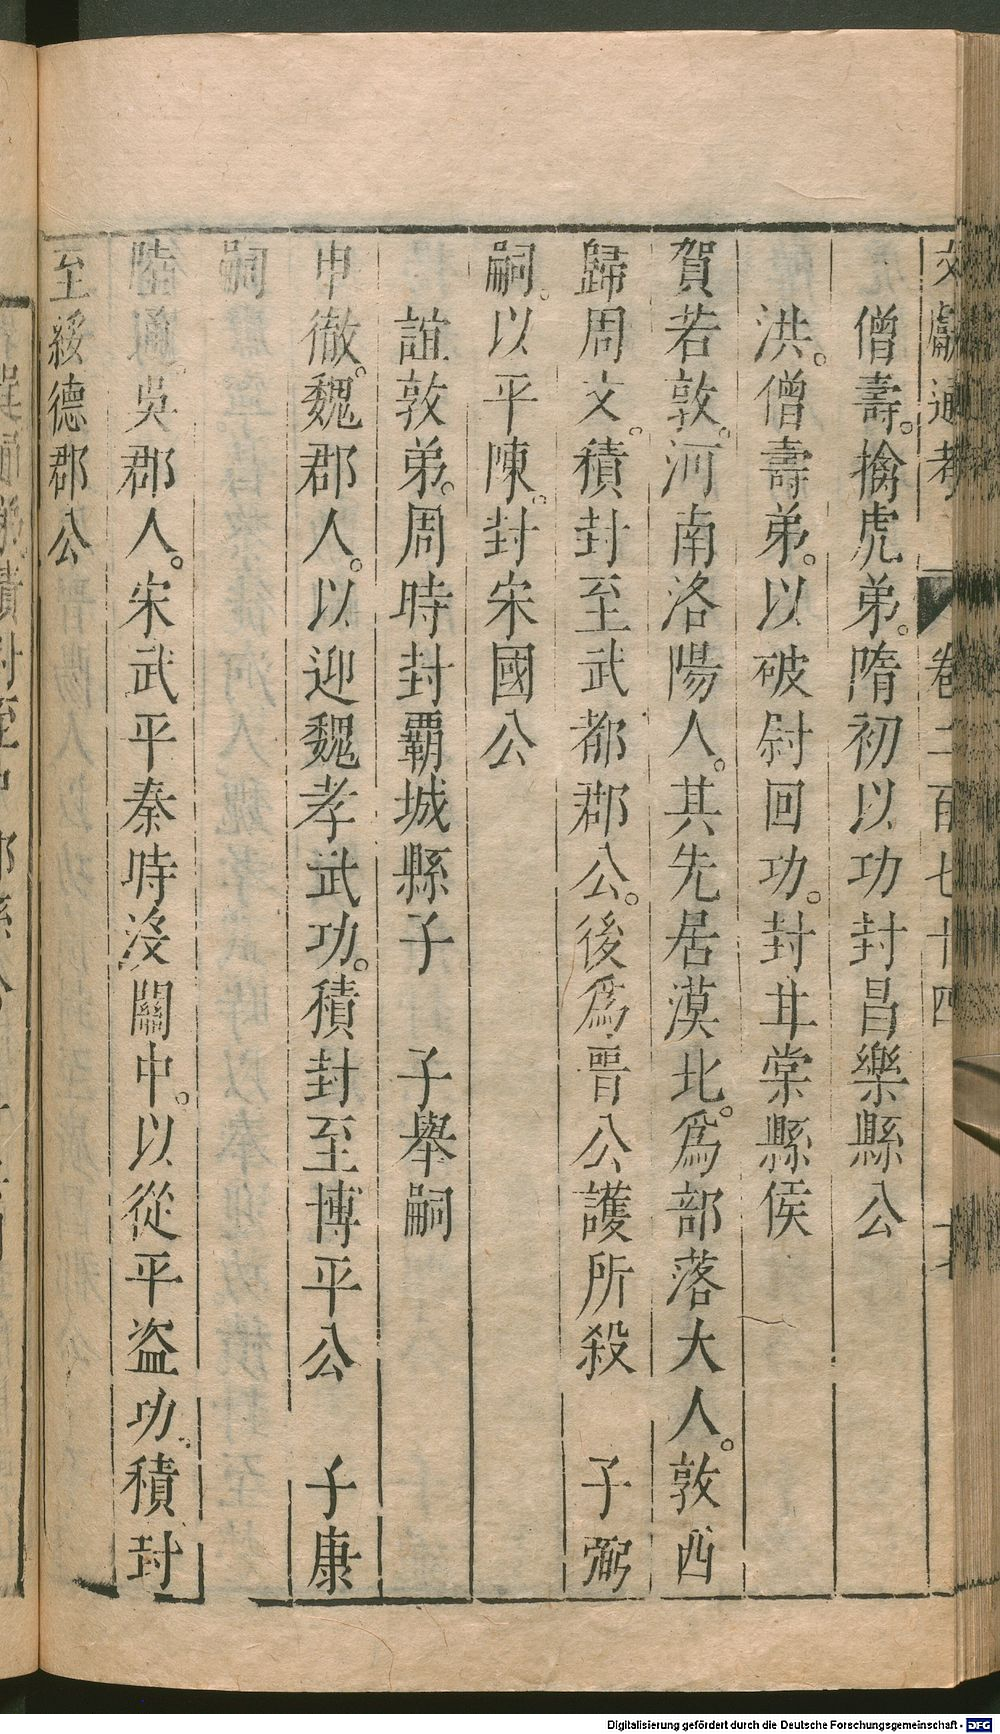 文獻通考 卷二百七十四
僧壽。擒虎弟。隋初以功封昌樂縣公
洪。僧壽弟。以破尉回功。封甘棠縣侯
賀若敦。河南洛陽人。其先居漠北。爲部落大人。敦西
歸周文。積封至武都郡公。後爲晋公護所殺 子弼
嗣。以平陳。封宋國公
誼敦弟。周時封覇城縣子 子舉嗣
申徹。魏郡人。以迎魏孝武功。積封至博平公 子康
嗣
陸通。吳郡人。宋武平秦時沒關中。以從平盗功。積封
至綏德郡公
Digitalisierung gefördert durch die Deutsche Forschungsgemeinschaft - DFG